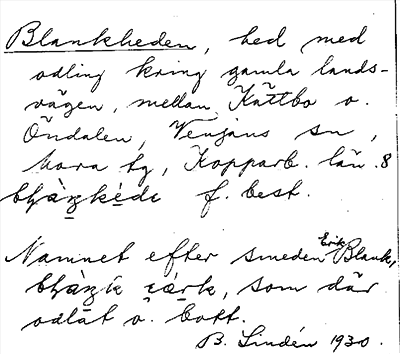 Blankheden, hed med
odling kring gamla lands-
vägen, mellan Kättbo o.
Öndalen, Venjans sn,
Mora tg, Kopparb. län. 8
f. best.
Namnet efter smeden Erik Blank,
som där
odlat o. bott.
B. Lindén 1930.